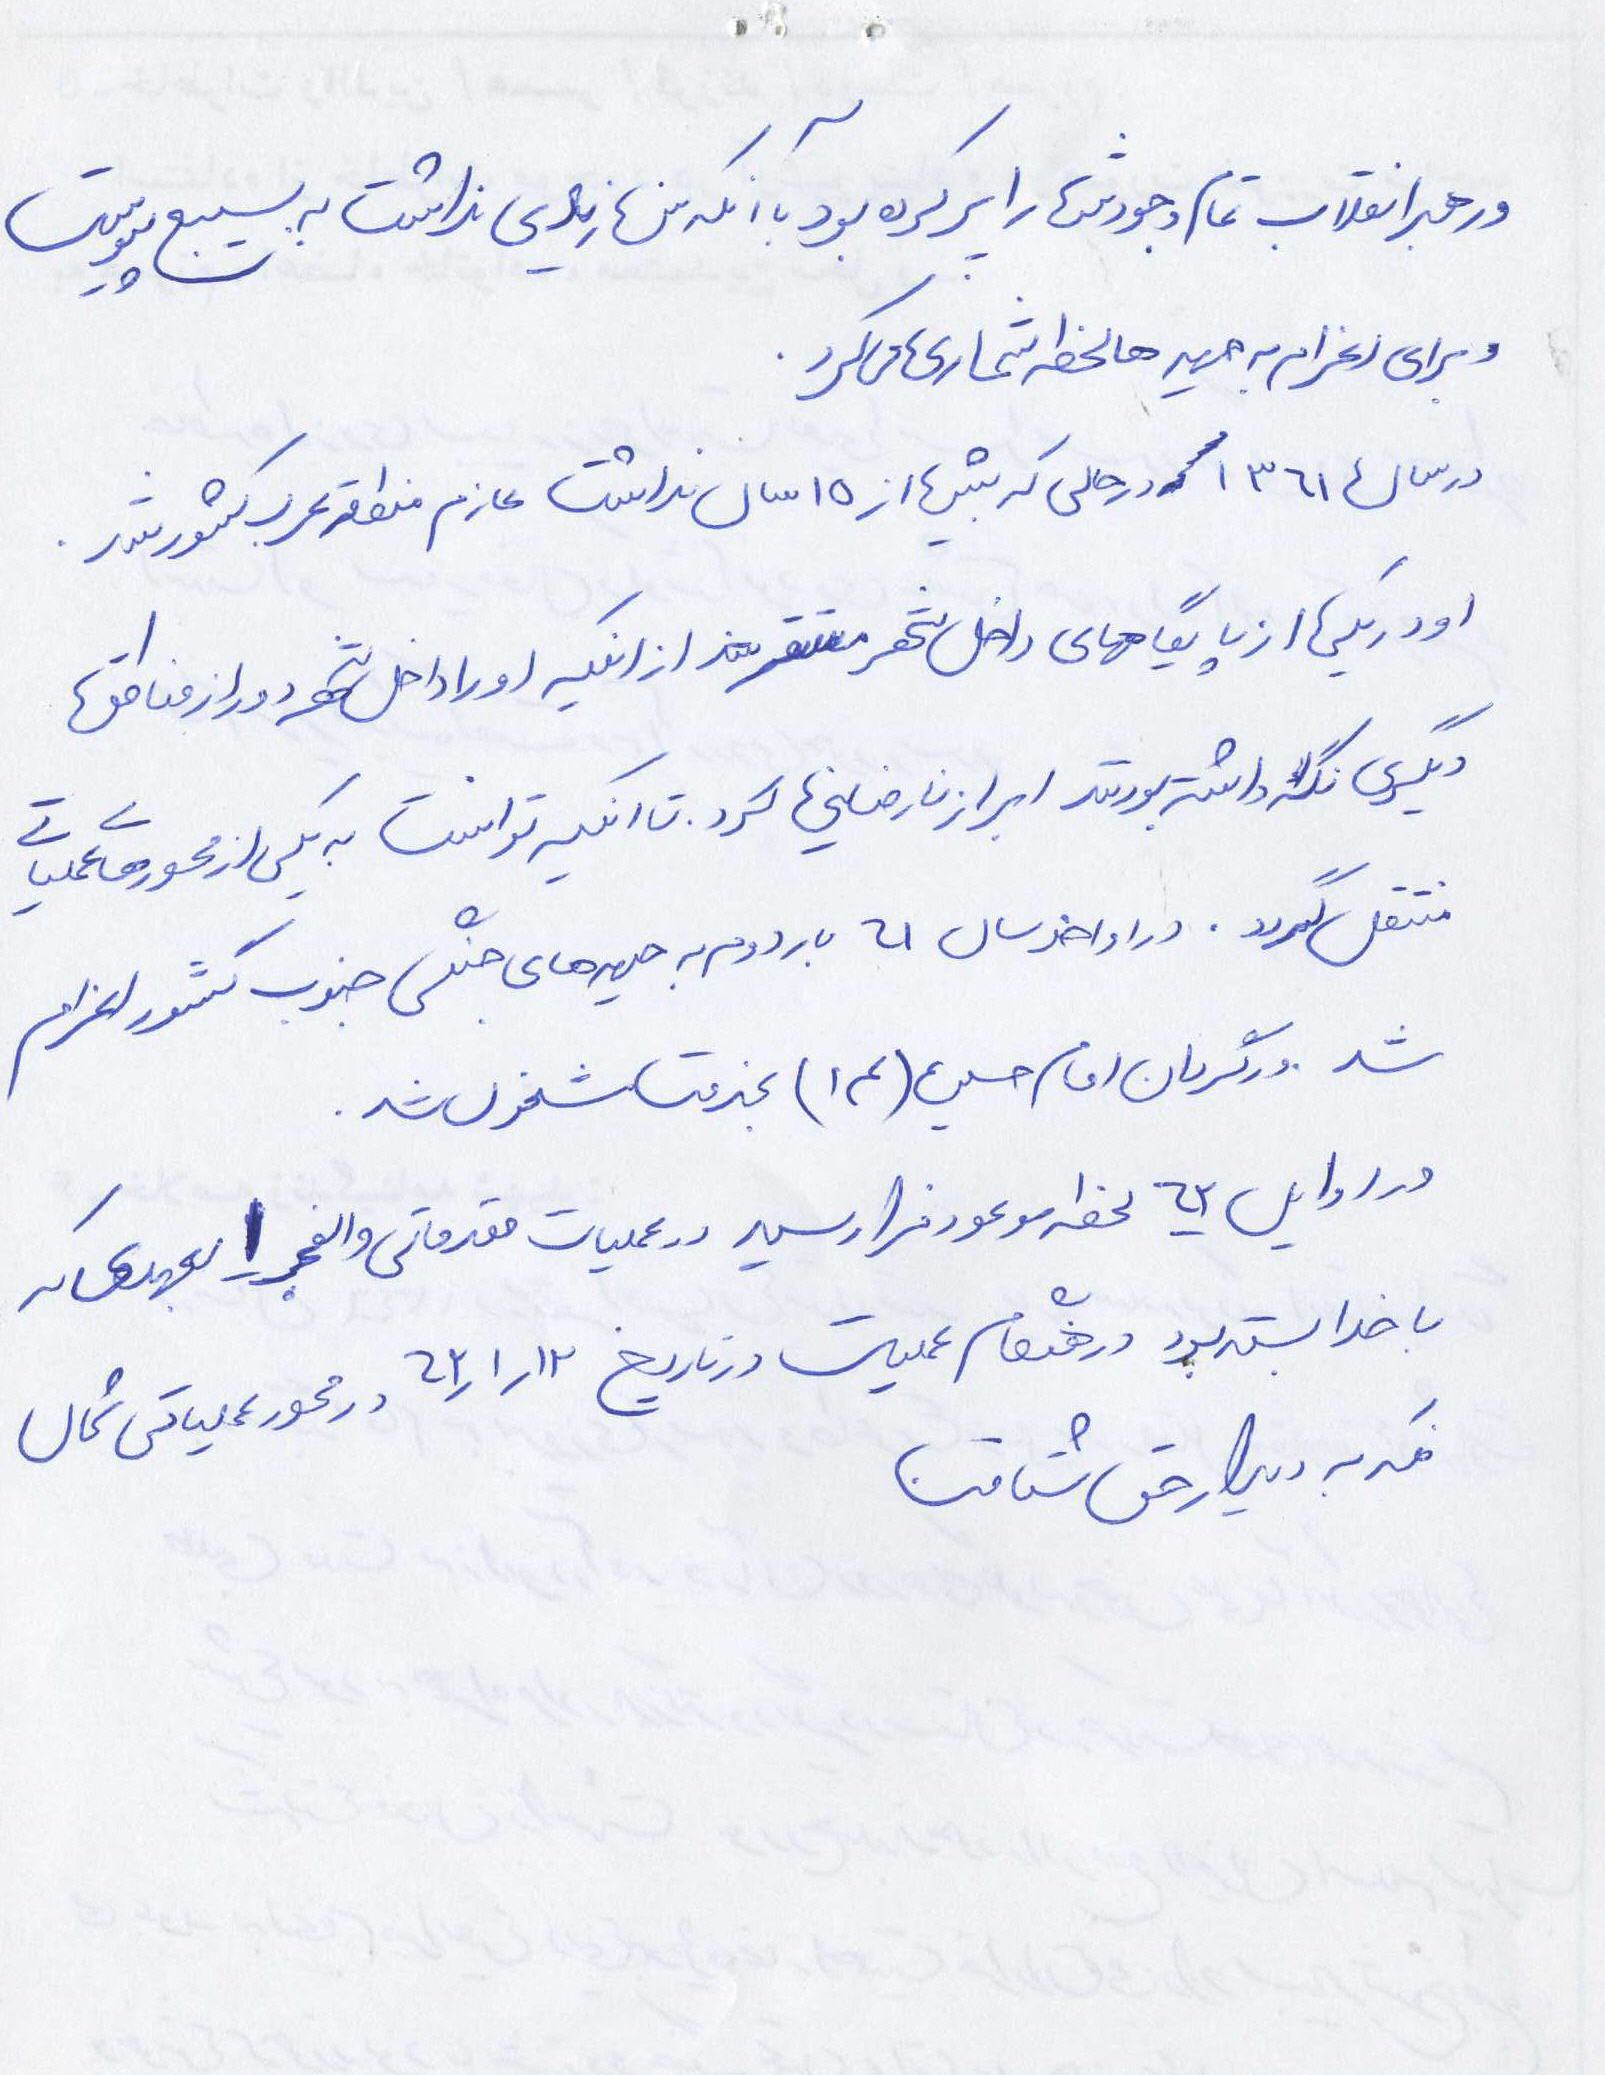 و رهبر انقلاب تمام وجودش را پر کرده بود با آنکه سن زیادی نداشت به بسیج پیوست
و برای اعزام به جبهه ها لحظه شماری می کرد .
در سال ۱۳۶۱ در حالی که بیش از ۱۵ سال نداشت عازم مناطق غرب کشور شد .
او در یکی از پایگاههای داخل شهر مستقر شد از اینکه او را داخل شهر دور از مناطق
دیگری نگه داشته بودند ابراز نارضایتی کرد . تا اینکه توانست به یکی از محورهای عملیاتی
منتقل گردد . در اواخر سال ۶۱ بار دوم به جبهه های جنگی جنوب کشور اعزام
شد . در گردان امام حسین (ع) بخدمت مشغول شد .
در اوایل ۶۲ لحظه موعود فرا رسید در عملیات مقدماتی والفجر ۱ بعهدی که
با خدا بسته بود در عملیات در تاریخ ۶۲/۱/۱۲ در محور عملیاتی شمال
فکه به دیدار حق شتافت